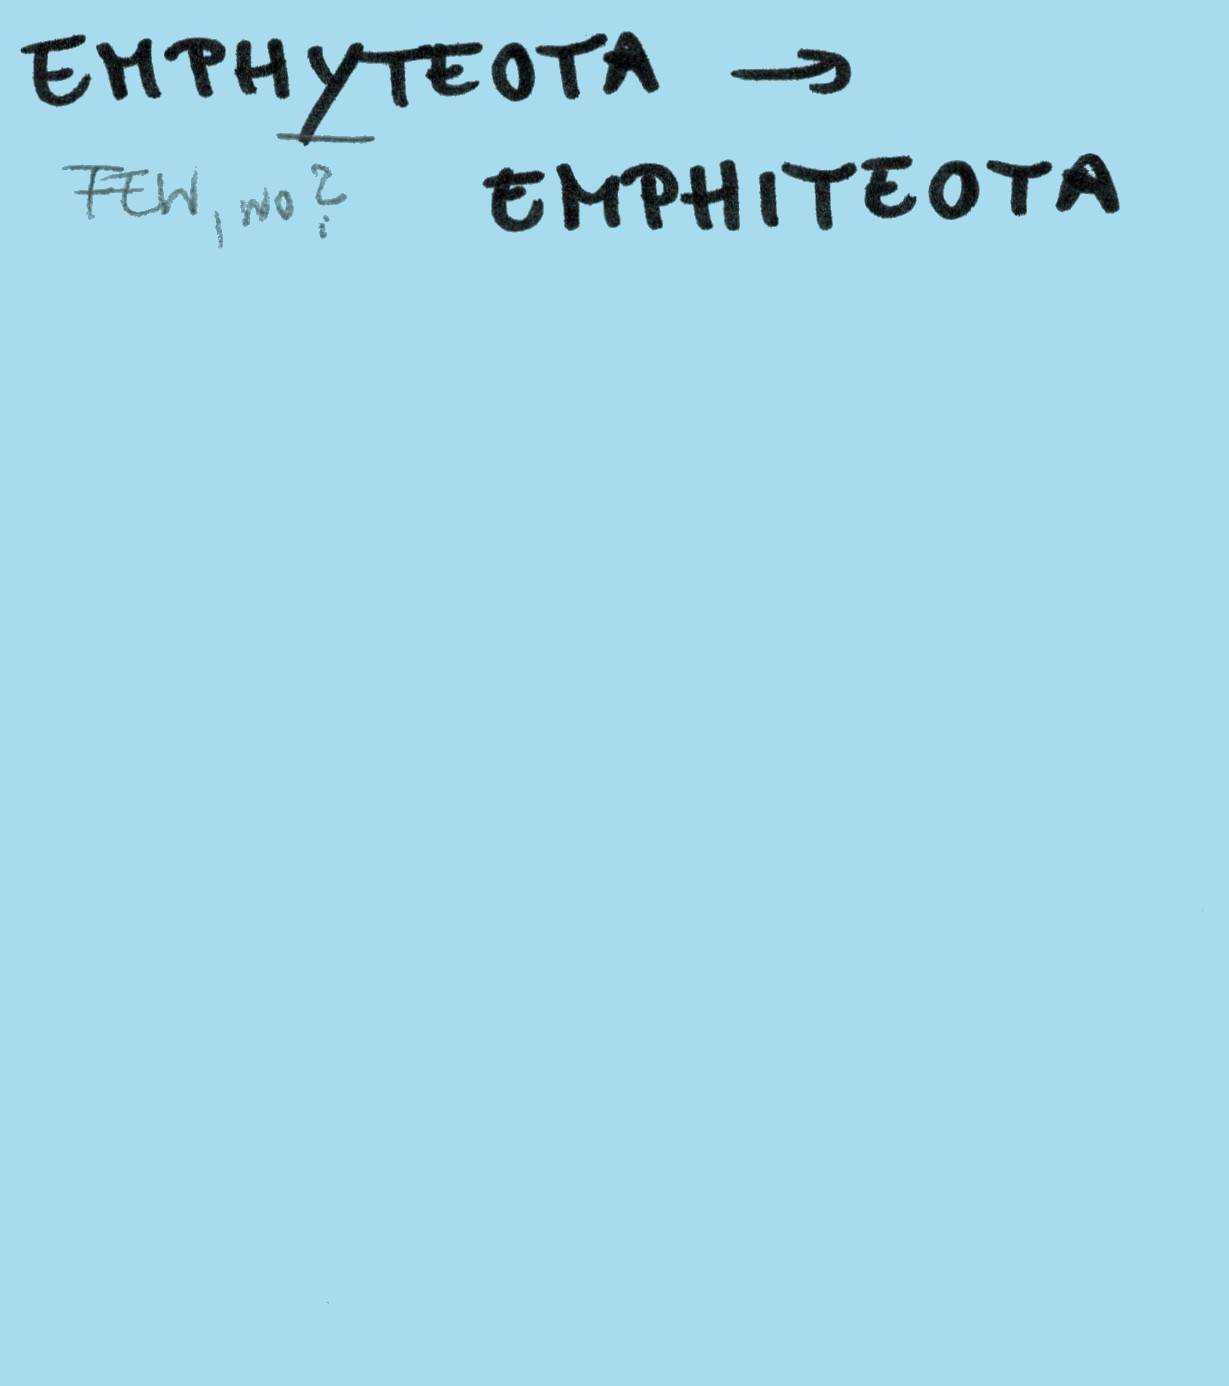 EMPHYTEOTA →
FEW, NO?
EMPHITEOTA